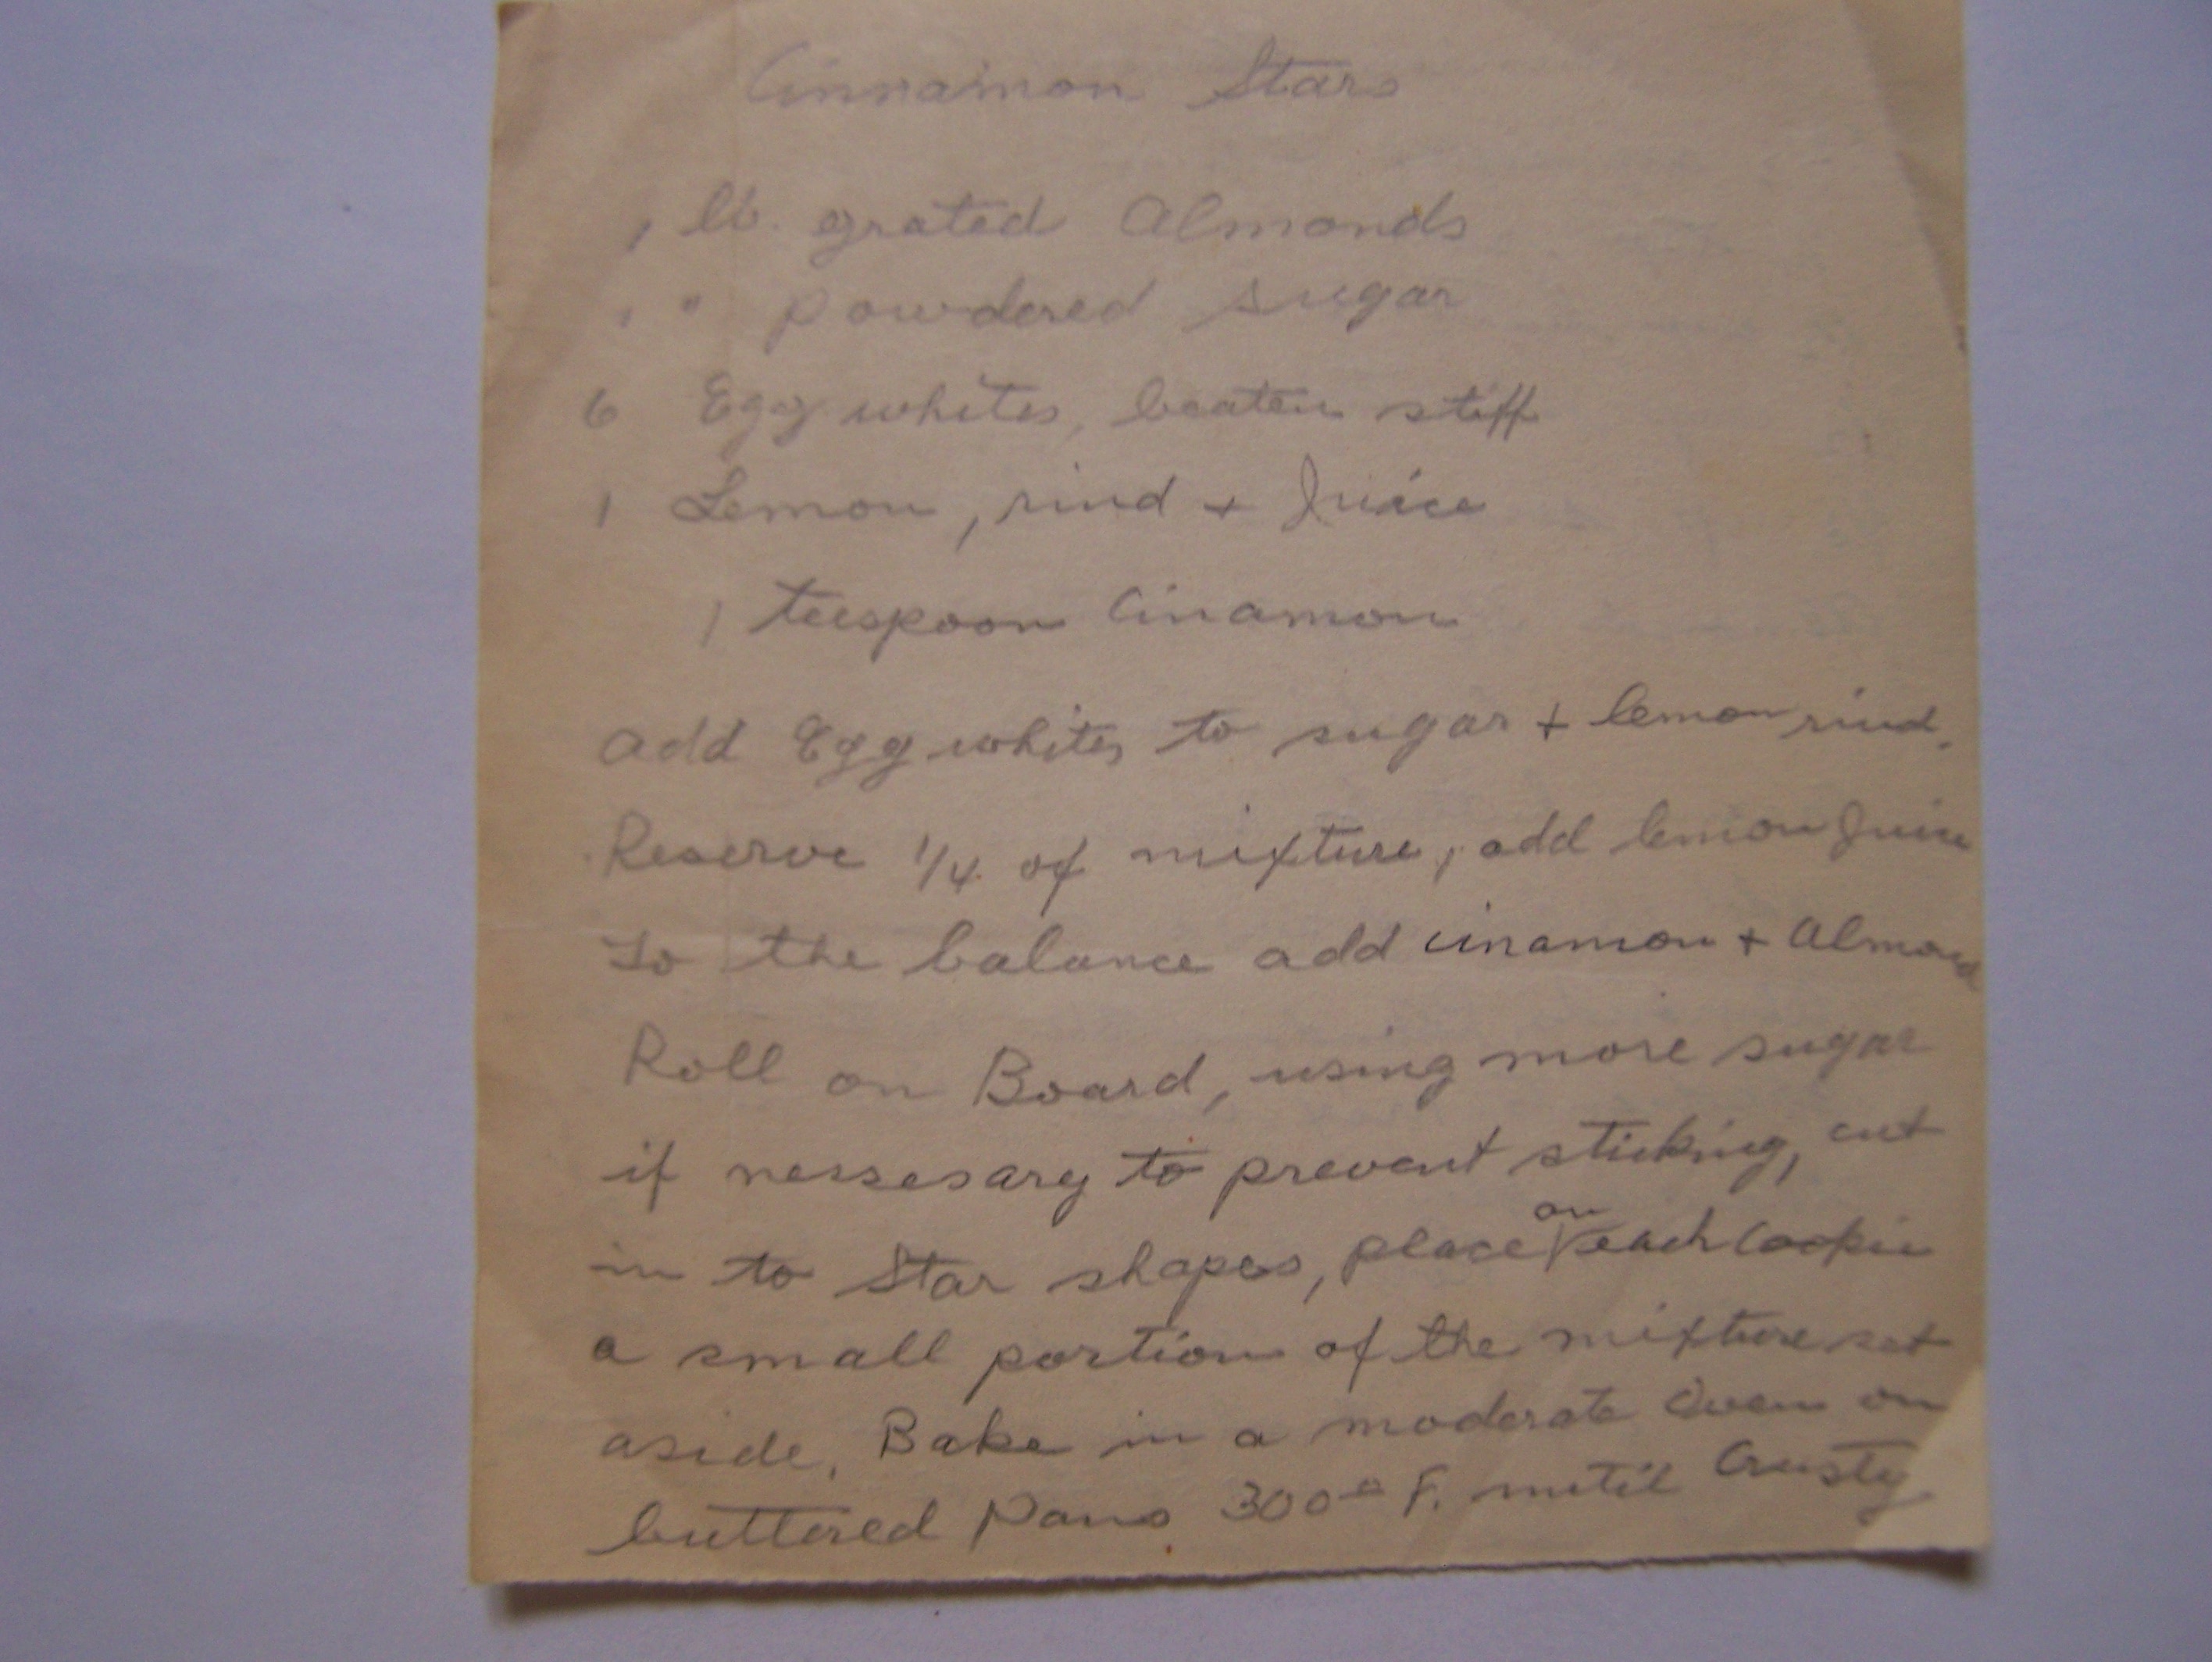 Cinnamon Stars
1 lb. grated Almonds
1 " powdered sugar
6 Egg whites, beaten stiff
1 Lemon, rind + Juice
1 teespoon Cinamon
add Egg whites to sugar + lemon rind.
Reserve 1/4 of mixture, add lemon Juice
To the balance add cinamon + Almond
Roll on Board, using more sugar
if nessesary to prevent sticking, cut
in to Star shapes, place on each Cookie
a small portion of the mixture set
aside. Bake in a moderate Oven on
buttered Pans 300° F. until Crusty